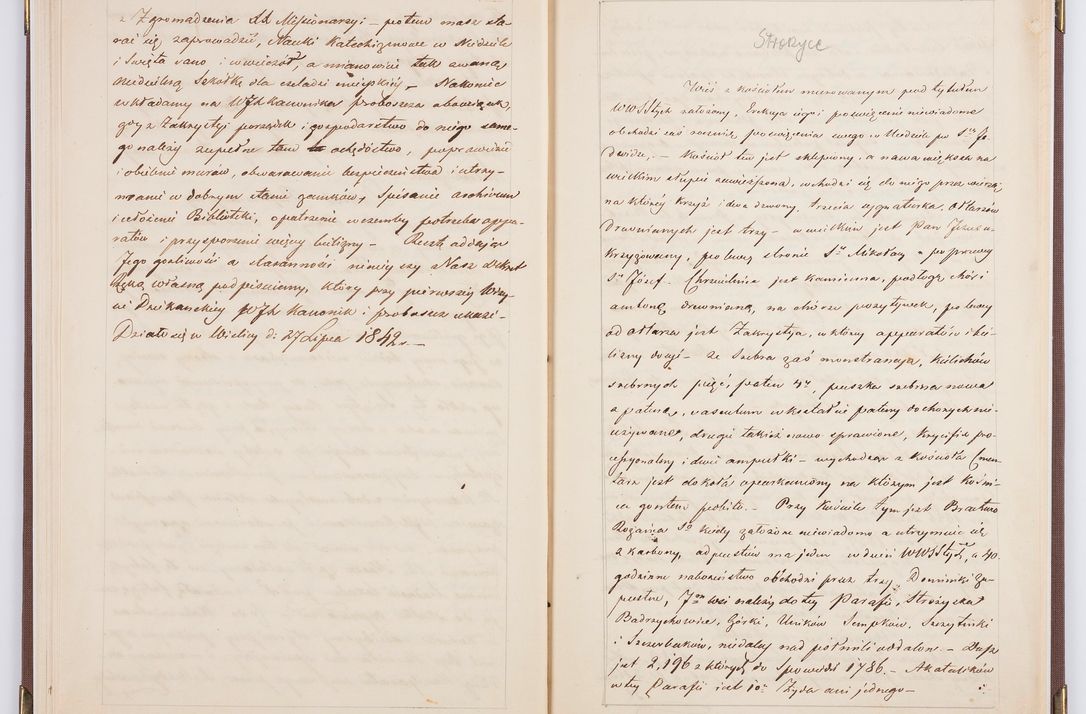 z Zgromadzenia XX Missionarzy; – potem masz sta-
rać się zaprowadzić, Nauki Katechizmowe w Niedziele
i Święta rano i wieczór, a mianowicie tak zwaną
niedzielną Szkółkę dla czeladzi miejskiéj – Nakoniec
wkładamy na WJX kanonika proboszcza obowiązek,
gdy z Zakrystyi porządek i gospodarstwo do niego same-
go należy zupełne tam ochędóstwo, poprawienie
i obielenie murów, obwarowanie bezpieczeństwa i utrzy-
manie w dobrym stanie zamków, Spisanie archiwum
i ułożenie Biblioteki, opatrzenie w czemby potrzeba appa-
ratów i przysporzenie więcéj bielizny – Resztę oddając
Jego gorliwości a staranności niniejszy Nasz dekret
Ręką własną podpisujemy, który przy pierwszéj Wizy-
cie Dziekańskiéj WJX Kanonik i proboszcz okaże –
Działo się w Wieliczce d: 27 Lipca 1842 r. –
Strożyce
Wieś z kościołem murowanym pod tytułem
WWSStych założony, Erekcya jego i poświęcenie niewiadome
obchodzi zaś rocznicę poświęcenia swego w Niedzielę po Stej Ja-
dwidze. – Kościół ten jest sklepiony, a nawa większa na
wielkim słupie zawieszona, wchodzi się do niego przez wieżę,
na któréj krzyż i dwa dzwony, trzecia sygnaturka, ołtarzów
Drewnianych jest trzy – w wielkim jest Pan Jezus u-
krzyżowany, po lewéj stronie Sty Mikołay a po prawéj
Sty Józef. Chrzcielnica jest kamienna, podłogę chór i
ambonę drewnianą, na chórze pozytywek, po lewéj
od ołtarza jest Zakrystya, w któréj apparatów i bie-
lizny dosyć – ze Srebra zaś monstrancya, kielichów
srebrnych pięć, paten 4ry, puszka srebrna nowa
z pateną, vasculum w kształcie pateny do chorych nie-
używane, drugie takież nowo sprawione, krycifix pro-
cessyonalny i dwie ampułki – wychodząc z Kościoła Cmen-
tarz jest dokoła oparkaniony na którym jest Kośni-
ca gontem pobita. – Przy Kościele tym jest Bractwo
Różańca Sgo kiedy założone niewiadomo a utrzymuie się
z karbony, odpustów ma jeden w dzień WWSStych, a 40
godzinne nabożeństwo obchodzi przez trzy Dominiki Za-
pustne, 7em wsi należy do tej Parafii, Strożyska
Badrzychowice, Górki, Uników Sempków, Szczytniki
i Szczerbaków, niedaley nad pół mili oddalone. – Dusz
jest 2,196 z których do Spowiedzi 1786. – Akatolików
w tey Parafii jest 10. Żyda ani jednego –